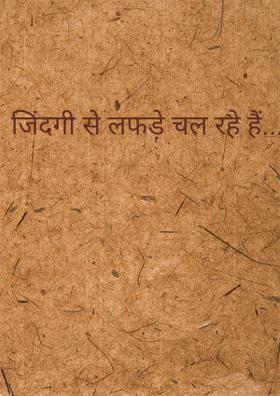 जिंदगी से लफड़े चल रहे हैं...